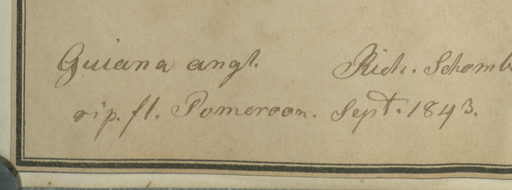 Guiana angl. Rich. Schomb
rip. fl. Pomeroon. Sept. 1843.